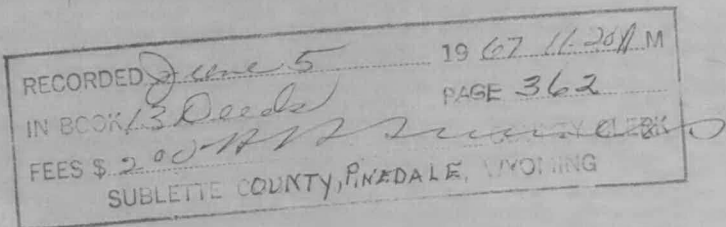 RECORDED June 5 1967 11:20 A M
IN BOOK 13 Deeds PAGE 362
FEES $ 2.00 COUNTY CLERK
SUBLETTE COUNTY, PINEDALE, WYOMING